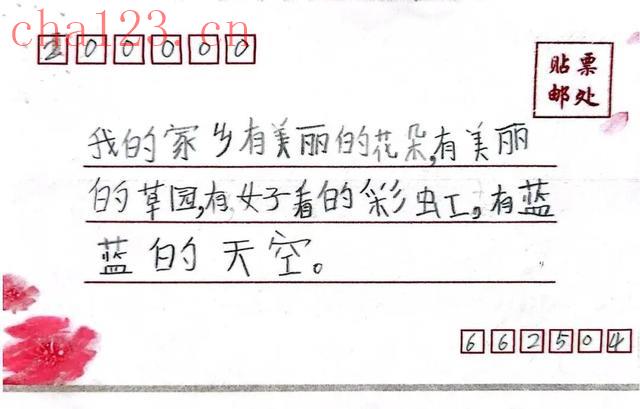 cha123.cn
200000
贴票
邮处
我的家乡有美丽的花朵,有美丽
的草园,有好看的彩虹。有蓝
蓝的天空。
662504